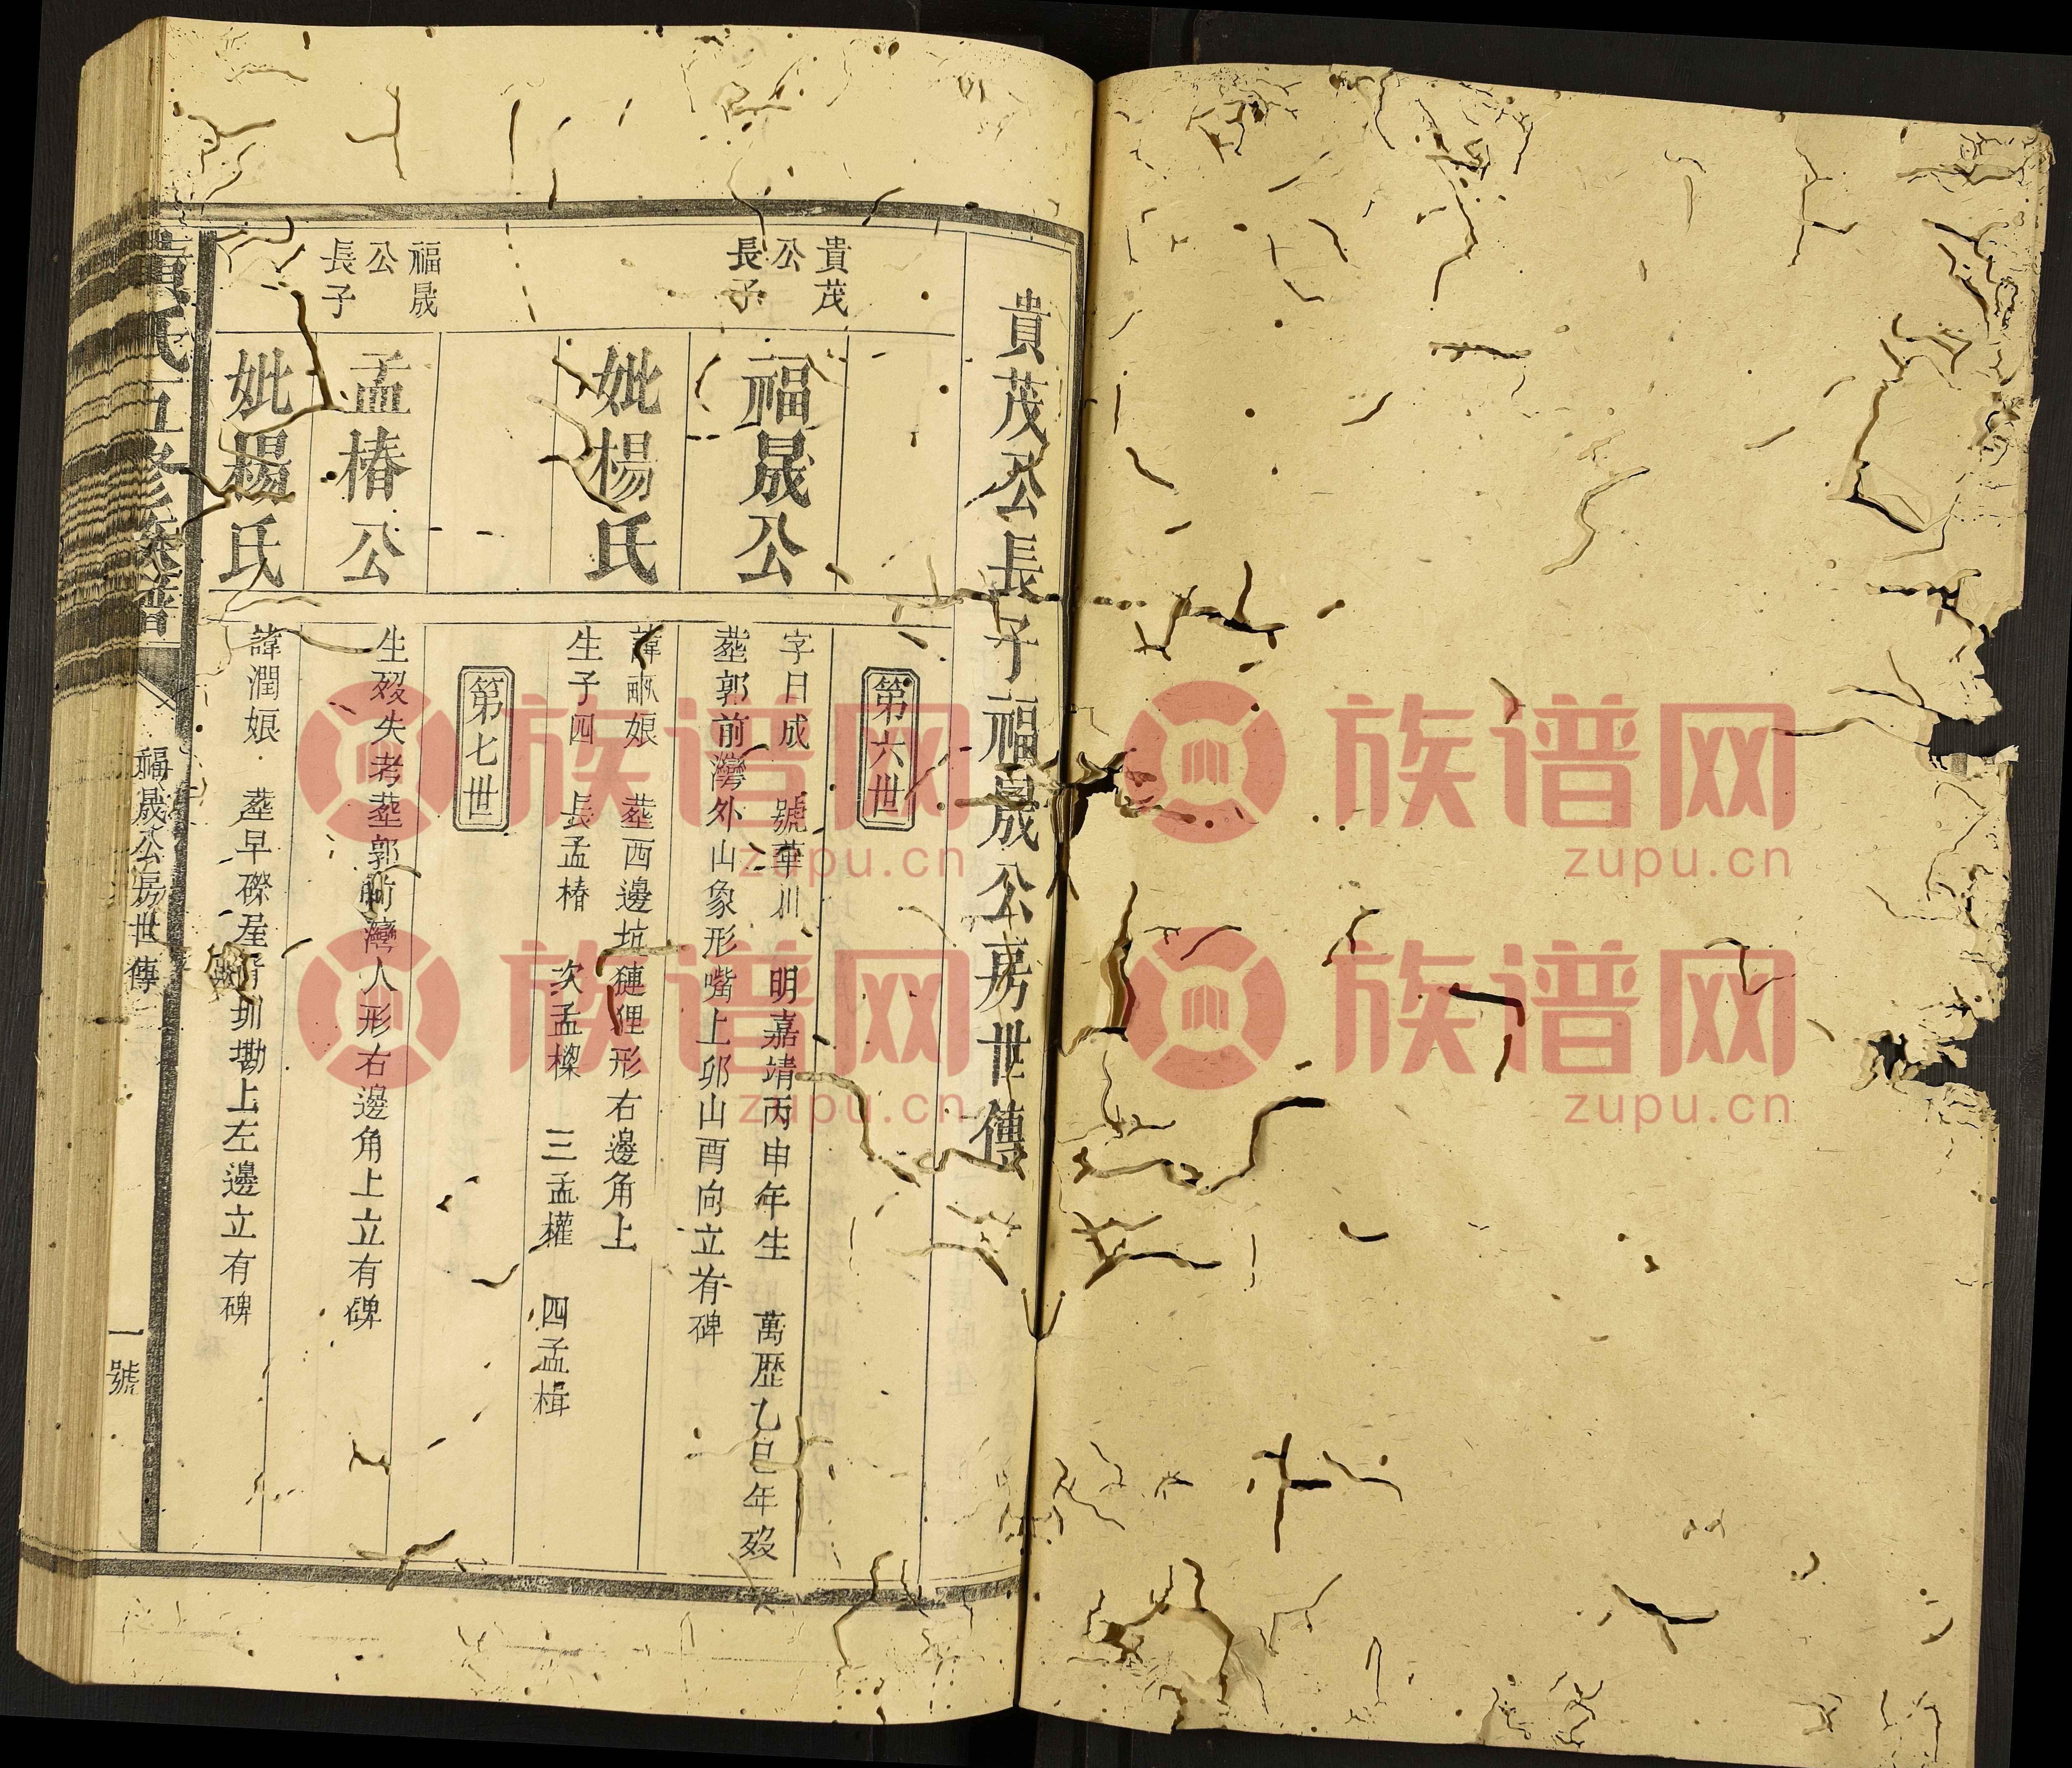 貴茂公長子福晟公房世傳
第六世
貴茂
公
長子
福晟公
字日成 號華川 明嘉靖丙申年生 萬歷乙巳年歿
塟郭前灣外山象形嘴上卯山酉向立有碑
妣楊氏
諱 娘 塟西邊坑 狸形右邊角上
生子四 長孟椿 次孟樑 三孟權 四孟楫
第七世
福晟
公
長子
孟椿公
生歿失考塟郭前灣人形右邊角上立有碑
妣楊氏
諱潤娘 塟早磜屋背圳墈上左邊立有碑
氏五修族譜
福晟公房世傳
一號
族谱网
zupu.cn
族谱网
zupu.cn
族谱网
zupu.cn
族谱网
zupu.cn